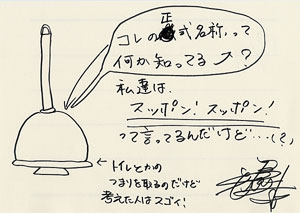 コレの正式名称って
何か知ってる?
私達は、
スッポン！スッポン！
って言ってるんだけど…(?)
←トイレとかの
つまりを取るのだけど
考えた人はスゴイ！